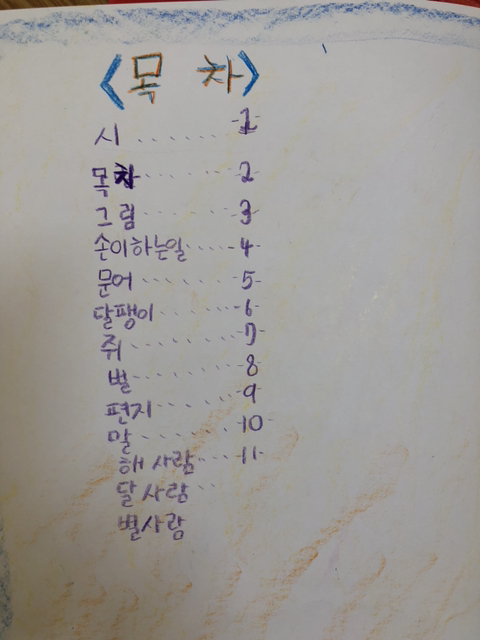 <목 차>
시 ........ -1-
목차 ........ -2-
그림 ........ -3-
손이하는일 ..... -4-
문어 ........ -5-
달팽이 ....... -6-
쥐 ........ -7-
벌 ........ 8
편지 ........ -9-
말 ........ -10-
해 사람 .... -11-
달 사람 ...
별사람